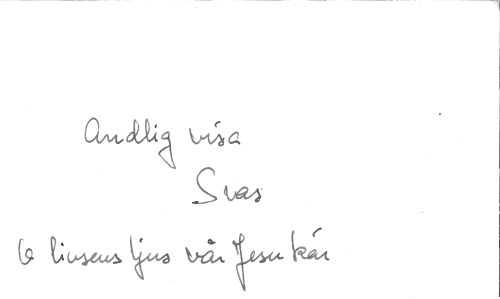 Andlig visa
Svas
O livsens ljus vår Jesu kär